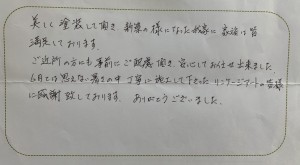 美しく塗装して頂き、新築の様になった我家に家族は皆
満足しております。
ご近所の方にも事前にご配慮頂き、安心してお任せ出来ました
6月とは思えない暑さの中丁寧に施工して下さったリンケージアートの皆様
に感謝致しております。ありがとうございました。